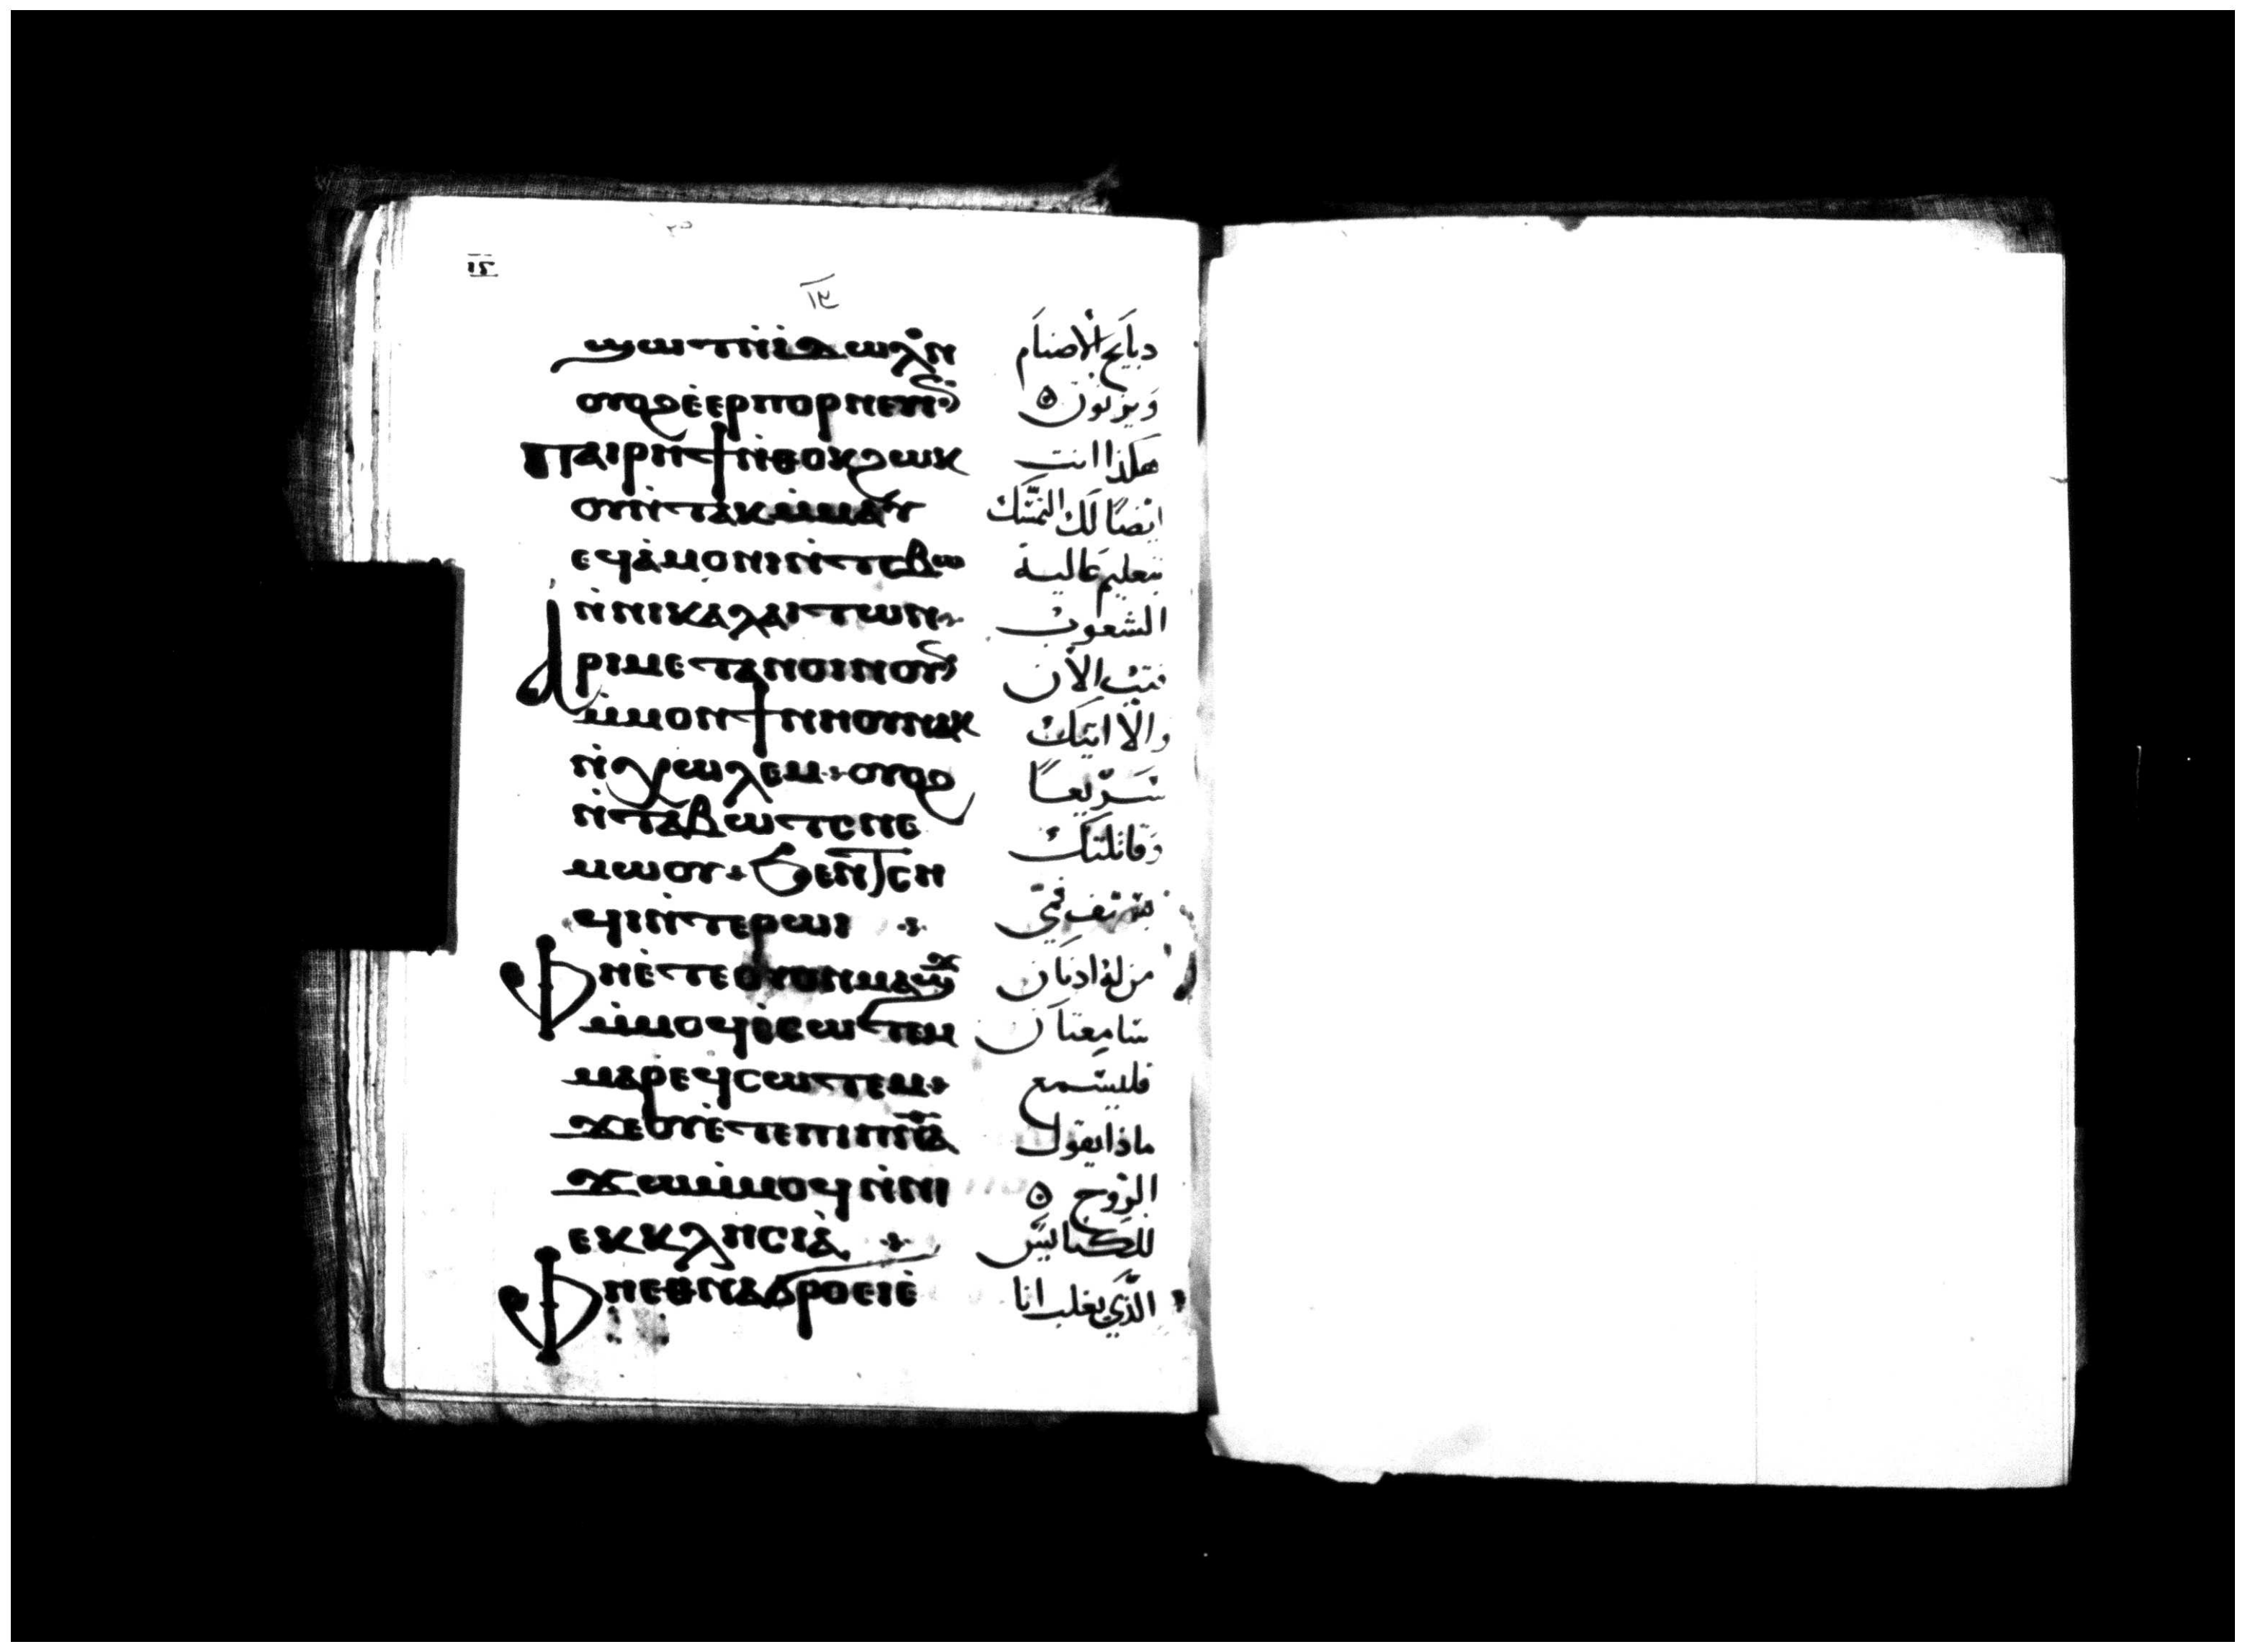 ϣⲱⲧⲛ̀ⲓ̀ⲇⲱⲗⲟⲛ
ⲟⲩⲟϩⲉ̀ⲉⲣⲡⲟⲣⲛⲉⲩⲓⲛ
ⲡⲁⲓⲣⲏϯⲛ̀ⲑⲟⲕϩⲱⲕ
ⲟⲩⲛ̀ⲧⲁⲕⲙ̀ⲙⲁⲩ
ⲉϥⲁ̀ⲙⲟⲛⲓⲛ̀ⲧⲥⲃⲱ
ⲛ̀ⲛⲓⲕⲁⲗⲁⲓⲧⲱⲛ
ⲁⲣⲓⲙⲉⲧⲁⲛⲟⲓⲛⲟⲩⲛ
ⲙ̀ⲙⲟⲛϯⲛⲏⲟⲩⲛⲁⲕ
ⲛ̀ⲭⲱⲗⲉⲙ ⲟⲩⲟϩ
ⲛ̀ⲧⲁⲃⲱⲧⲥⲛⲉ
ⲙⲱⲟⲩ ϧⲉⲛⲧⲥⲏ
ϥⲓⲛ̀ⲧⲉⲣⲱⲓ
ⲫⲏⲉ̀ⲧⲉⲟⲩⲟⲛⲙⲁϣϫ
ⲙ̀ⲙⲟϥⲉ̀ⲥⲱⲧⲉⲙ
ⲙⲁⲣⲉϥⲥⲱⲧⲉⲙ
ϫⲉⲟⲩⲉ̀ⲧⲉⲡⲓⲡⲛⲁ
ϫⲱⲙ̀ⲙⲟϥⲛ̀ⲛⲓ
ⲉⲕⲕⲗⲏⲥⲓⲁ̀
ⲫⲏⲉⲑⲛⲁϭⲣⲟⲉⲓⲉ̀
دبايح الاصنام
ويزنون
هكذا انت
ايضا لك التمسك
بتعليم غالبية
الشعوب
فتب الان
والا اتيك
سريعا
وقاتلتك
بسيف فمي
من له ادنان
سامعتان
فليسمع
ماذا يقول
الروح
للكنايس
الذي يغلب انا